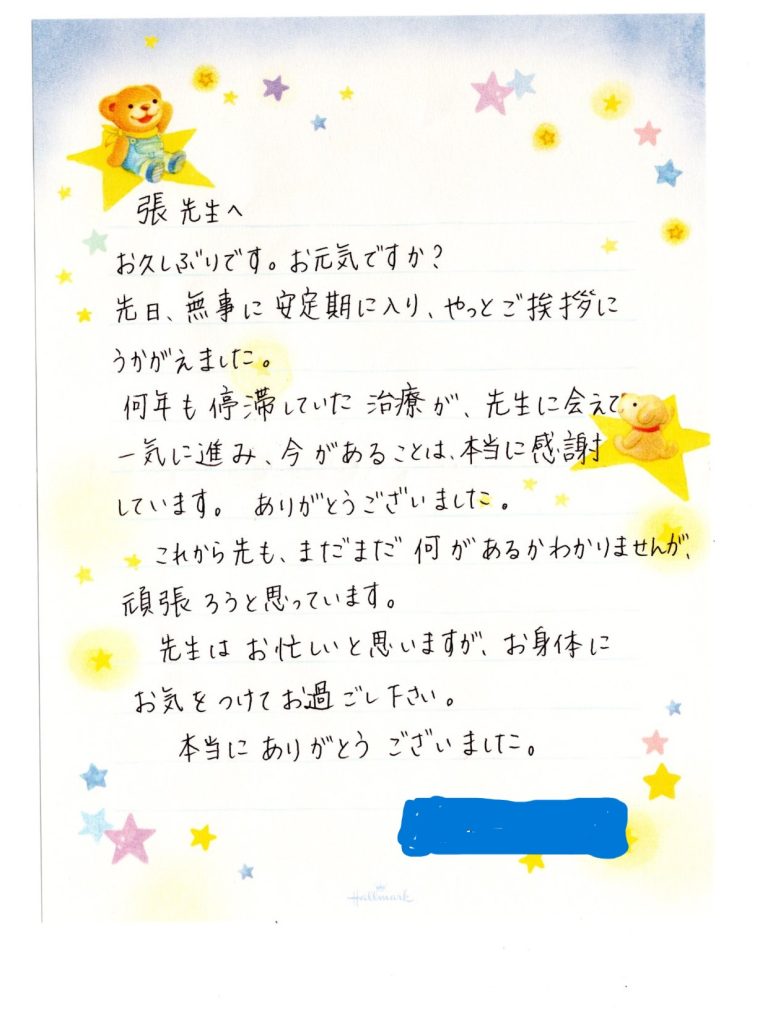 張先生へ
お久しぶりです。お元気ですか？
先日、無事に安定期に入り、やっとご挨拶に
うかがえました。
何年も停滞していた治療が、先生に会えて
一気に進み、今があることは、本当に感謝
しています。ありがとうございました。
これから先も、まだまだ何があるかわかりませんが、
頑張ろうと思っています。
先生はお忙しいと思いますが、お身体に
お気をつけてお過ごし下さい。
本当にありがとうございました。
Hallmark